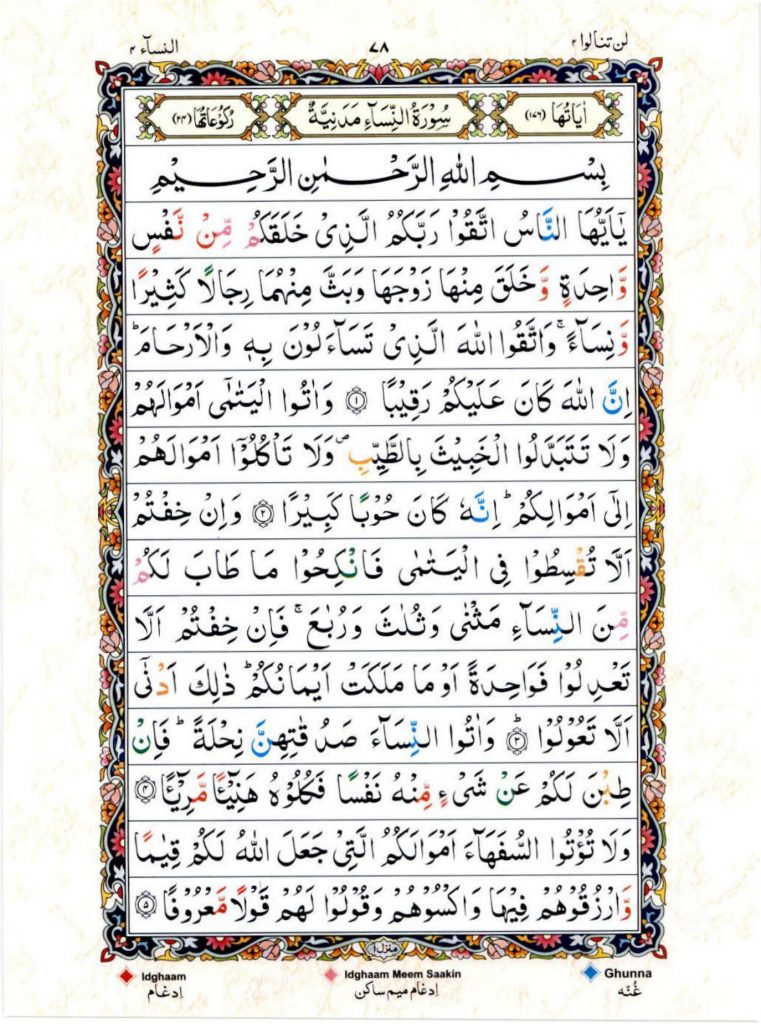 لن تنالوا ۴
۷۸
النسآء ۴
اٰیَاتُهَا (۱۷۶)
سُوْرَةُ النِّسَآءِ مَدَنِیَّةٌ
رُكُوْعَاتُهَا (۲۴)
بِسْمِ اللهِ الرَّحْمٰنِ الرَّحِیْمِ
یٰۤاَیُّهَا النَّاسُ اتَّقُوْا رَبَّكُمُ الَّذِیْ خَلَقَكُمْ مِّنْ نَّفْسٍ
وَّاحِدَةٍ وَّخَلَقَ مِنْهَا زَوْجَهَا وَبَثَّ مِنْهُمَا رِجَالًا كَثِیْرًا
وَّنِسَآءً ۚ وَاتَّقُوا اللهَ الَّذِیْ تَسَآءَلُوْنَ بِهٖ وَالْاَرْحَامَ ؕ
اِنَّ اللهَ كَانَ عَلَیْكُمْ رَقِیْبًا ۝۱ وَاٰتُوا الْیَتٰمٰۤی اَمْوَالَهُمْ
وَلَا تَتَبَدَّلُوا الْخَبِیْثَ بِالطَّیِّبِ ۪ وَلَا تَاْكُلُوْۤا اَمْوَالَهُمْ
اِلٰۤی اَمْوَالِكُمْ ؕ اِنَّهٗ كَانَ حُوْبًا كَبِیْرًا ۝۲ وَاِنْ خِفْتُمْ
اَلَّا تُقْسِطُوْا فِی الْیَتٰمٰی فَانْكِحُوْا مَا طَابَ لَكُمْ
مِّنَ النِّسَآءِ مَثْنٰی وَثُلٰثَ وَرُبٰعَ ۚ فَاِنْ خِفْتُمْ اَلَّا
تَعْدِلُوْا فَوَاحِدَةً اَوْ مَا مَلَكَتْ اَیْمَانُكُمْ ؕ ذٰلِكَ اَدْنٰۤی
اَلَّا تَعُوْلُوْا ۝۳ؕ وَاٰتُوا النِّسَآءَ صَدُقٰتِهِنَّ نِحْلَةً ؕ فَاِنْ
طِبْنَ لَكُمْ عَنْ شَیْءٍ مِّنْهُ نَفْسًا فَكُلُوْهُ هَنِیْٓـًٔا مَّرِیْٓـًٔا ۝۴
وَلَا تُؤْتُوا السُّفَهَآءَ اَمْوَالَكُمُ الَّتِیْ جَعَلَ اللهُ لَكُمْ قِیٰمًا
وَّارْزُقُوْهُمْ فِیْهَا وَاكْسُوْهُمْ وَقُوْلُوْا لَهُمْ قَوْلًا مَّعْرُوْفًا ۝۵
منزل ۱
Idghaam
Idghaam Meem Saakin
Ghunna
اِدغام
اِدغام میم ساکن
غُنّه